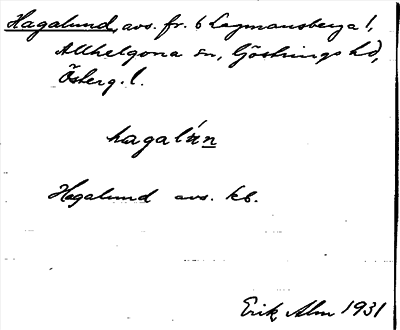 Hagalund, avs. fr. 6 Legmansberga l,
Allhelgona sn, Göstrings hd,
Österg. l.
hagalún
Hagalund avs. kb.
Erik Alm 1931